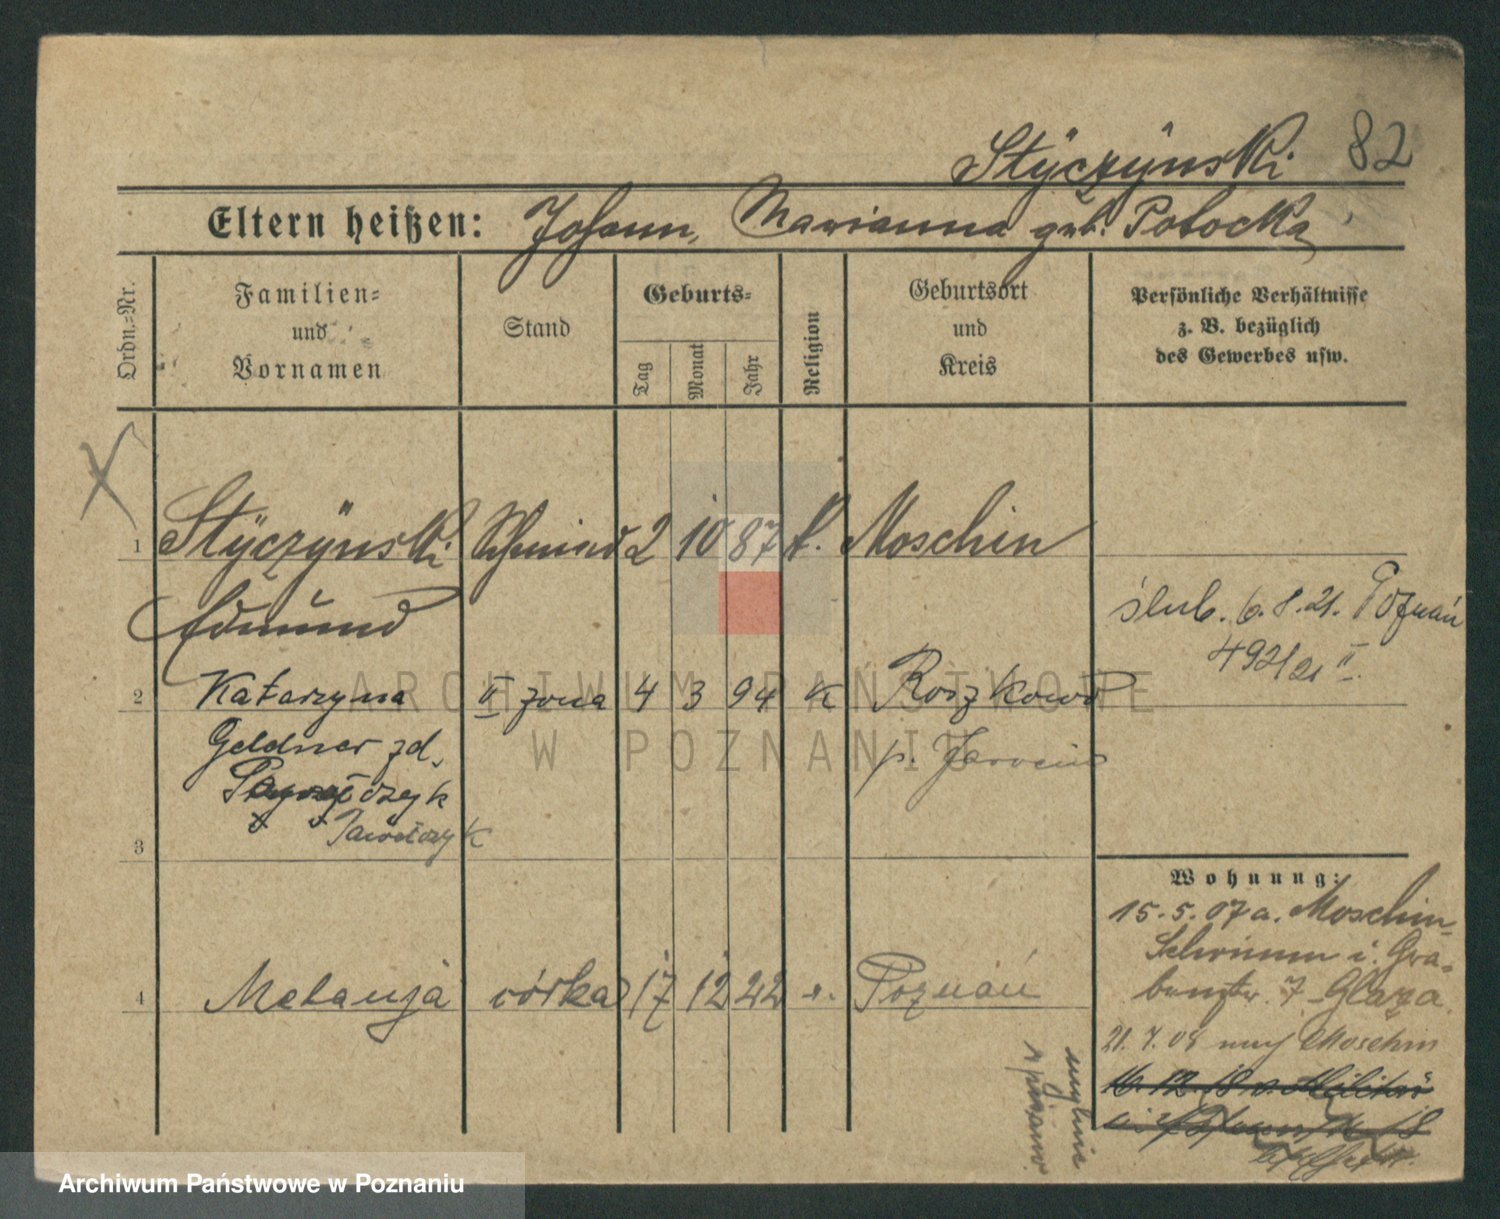 82
Styczynski
Eltern heißen: Johann, Marianna geb. Potocka
Ordn.=Nr.
Familien=
und
Vornamen
Stand
Geburts=
Tag
Monat
Jahr
Religion
Geburtsort
und
Kreis
Persönliche Verhältnisse
z. B. bezüglich
des Gewerbes usw.
1 Styczynski Schmied 2 10 87 k. Moschin
Edmund
ślub. 6.8.21. Poznań
492/21 II.
2 Katarzyna II żona 4 3 94 k Roszkowo
Geldner zd. p. Jarocin
3
Wohnung:
15.5.07 a. Moschin
Schrimm i. Gra-
benstr. 7 Glaza
4 Melanja córka 17 12 22 k. Poznań
21.7.08 nach Moschin
mylnie
wpisano
ARCHIWUM PAŃSTWOWE
W POZNANIU
Archiwum Państwowe w Poznaniu